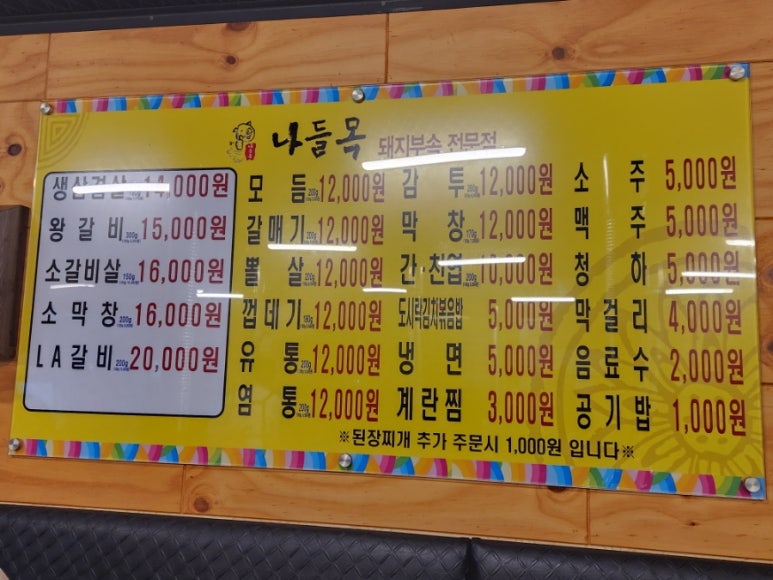 나들목 돼지부속 전문점
생삼겹살 14,000원
왕갈비 300g 15,000원
소갈비살 150g 16,000원
소막창 200g 16,000원
LA갈비 200g 20,000원
모듬 200g 12,000원
갈매기 200g 12,000원
뽈살 200g 12,000원
껍데기 12,000원
유통 200g 12,000원
염통 200g 12,000원
감투 200g 12,000원
막창 170g 12,000원
간.천엽 200g 10,000원
도시락김치볶음밥 5,000원
냉면 5,000원
계란찜 3,000원
소주 5,000원
맥주 5,000원
청하 5,000원
막걸리 4,000원
음료수 2,000원
공기밥 1,000원
※된장찌개 추가 주문시 1,000원 입니다※